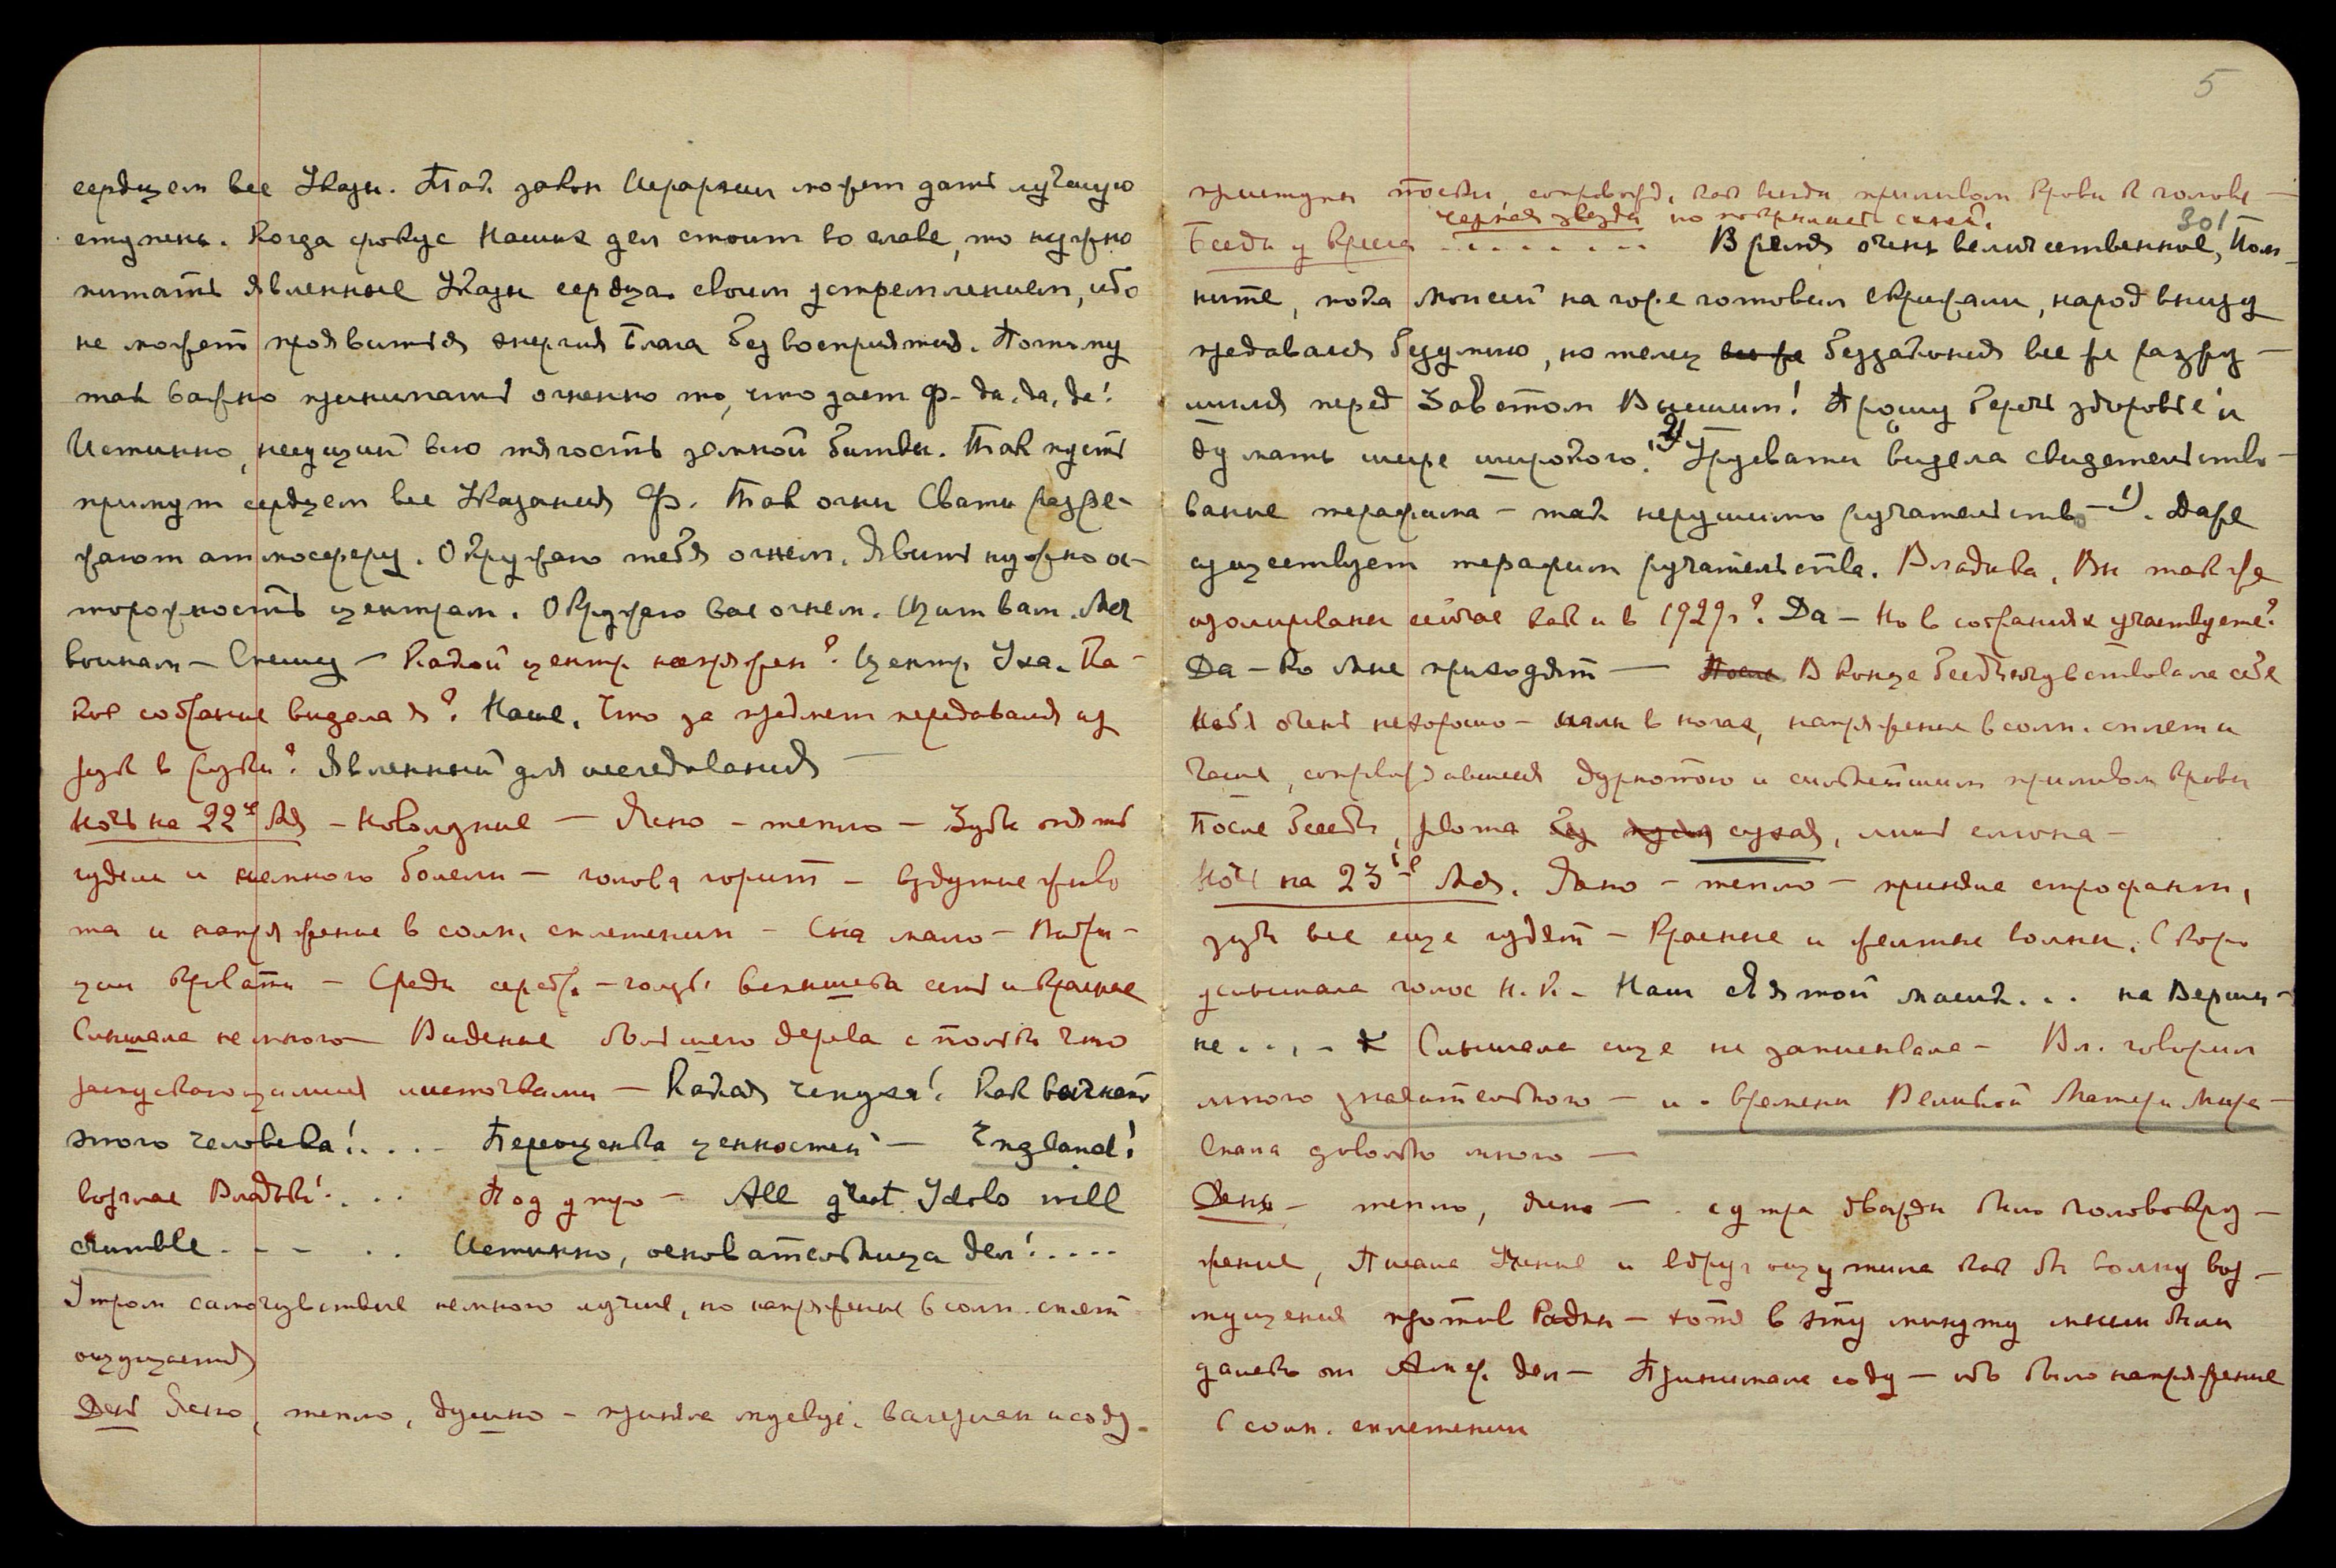 сердцем все Указы. Так закон Иерархии может дать лучшую
ступень. Когда фокус Наших дел стоит во главе, то нужно
питать явленные Указы сердца своим устремлением, ибо
не может проявиться энергия Блага без восприятия. Потому
так важно принимать огненно то, что дает Ф- да, да, да!
Истинно, несущий всю тягость земной битвы. Так пусть
примут сердцем все Указания Ф. Так огни Свати разре-
жают атмосферу. Окружаю тебя огнем. Явить нужно ос-
торожность центрам. Окружаю вас огнем. Щит вам. Меч
воинам – Спешу – Какой центр напряжен? Центр Уха. Ка-
кое собрание видела я? Наше. Что за предмет передавался из
рук в руки? Явленный для исследования —
Ночь на 22ое Мая – Новолуние — Ясно – тепло – Зубы опять
гудели и немного болели – голова горит – вздутие живо
та и напряжение в солн. сплетении – Сна мало –
кровати – Среди серебр. – голуб. вспышека сеть и красная
Слышала немного – Видение большого дерева с
листочками – Какая чепуха! Как
этого человека!. . . . Переоценка ценностей — England!
возглас Владыки!. . . Под утро – All great Idols will
crumble. - - . . Истинно, основательница дел!. . . .
Утром самочувствие немного лучше, но напряжение в солн. сплет
ощущается
День Ясно, тепло, душно – приняла мускус, валериан и соду.
5
приступы тоски, сопровожд. как всегда приливом крови к голове —
черная звезда но покрывает синей.
301
Беседы у Крыла . . . . . . . Время очень величественное, Пом-
ните, пока Моисей на горе готовил скрижали, народ внизу
предавался безумию, но телец все же беззакония все же разру-
шился перед Заветом Высшим! Прошу беречь здоровье и
думать шире широкого. 2) Урусвати видела свидетельство-
вание терафима – так нерушимо ручательство –1). Даже
существует терафим ручательства. Владыка, Вы также
изолированы сейчас как и в 1929г? Да – Но в собраниях участвуете?
Да – Ко Мне приходят — После В конце Беседы чувствовала себя
очень нехорошо – иглы в ногах, напряжение в солн. сплет и
чаше, сопровождавшиеся дурнотою и сильнейшим приливом крови
После беседы, рвота без сухая, лишь слюна –
Ночь на 23ье Мая. Ясно – тепло – приняла строфант,
зубы все еще гудят – Красные и желтые волны. Скоро
услышала голос Н.К. – Наш Святой маяк. . . на Верши-
не . . , - Слышала еще не записывала – Вл. говорил
много значительного – и о времени Великой Матери Мира –
Спала довольно много —
День – тепло, ясно — с утра дважды было головокру-
жение, Писала Учение и вдруг ощутила как бы волну воз-
мущения против Радны – хотя в эту минуту мысли были
далеко от Амер. дел – Принимала соду – ибо было напряжение
в солн. сплетении